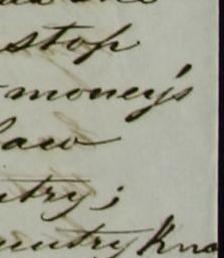 stop
moneys
law
ntry;
untry Kno